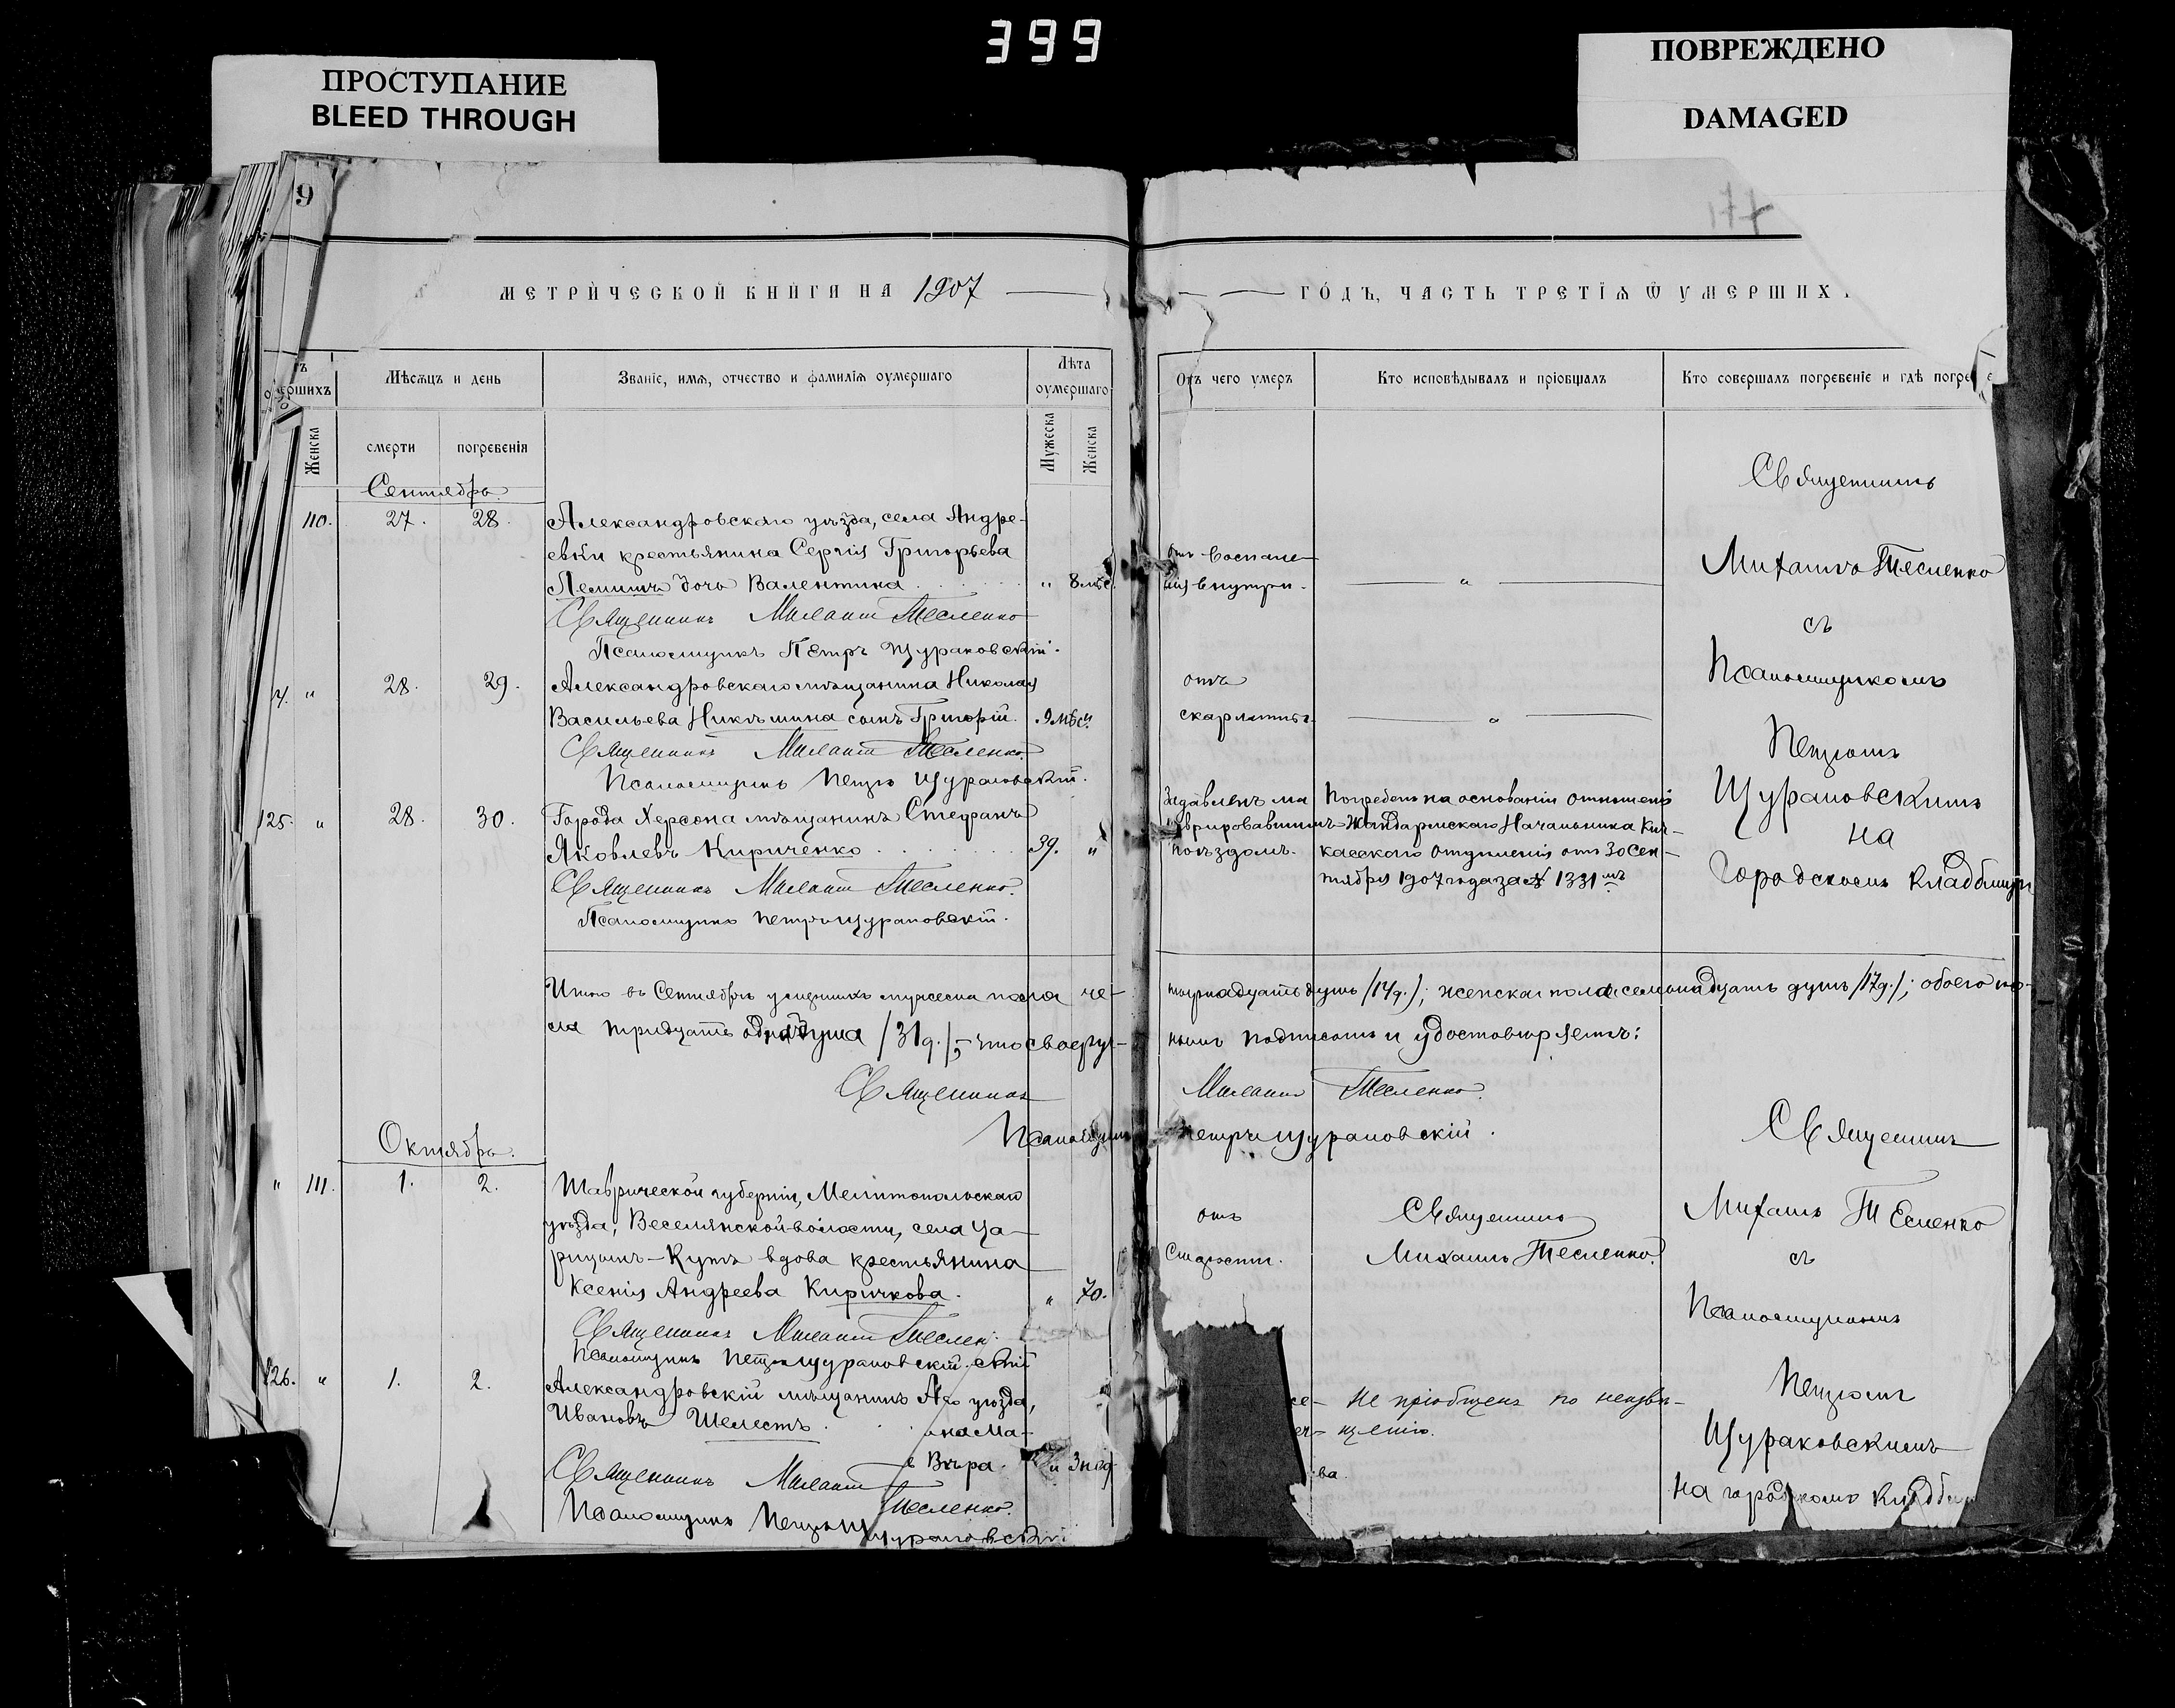 399
ПРОСТУПАНИЕ
BLEED THROUGH
ПОВРЕЖДЕНО
DAMAGED
9
171
МЕТРИЧЕСКОЙ КНИГИ НА 1907
ГОДЪ, ЧАСТЬ ТРЕТІѦ Ѿ УМЕРШИХ
Мѣсѧцъ и день
Званіе, имѧ, отчество и фамиліѧ оумершаго
Лѣта
оумершаго
Женска
смерти
погребенія
Мужеска
Женска
Отъ чего умеръ
Кто исповѣдывалъ и пріобщалъ
Кто совершалъ погребеніе и гдѣ
Сентябрь.
110. 27. 28.
Александровскаго уѣзда, села Андре-
евки крестьянина Сергія Григорьева
дочь Валентина " 8 мѣс.
Священникъ Михаилъ Тесленко
Псаломщикъ Петръ Щураковскій.
отъ воспале-
нія внутри.
"
" 28. 29.
Александровскаго мѣщанина Николая
Васильева Никѣшина сынъ Григорій. 9 мѣс. "
Священникъ Михаилъ Тесленко.
Псаломщикъ Петръ Щураковскій.
отъ
скарлатины.
"
125. " 28. 30.
Города Херсона мѣщанинъ Стефанъ
Яковлевъ Кириченко 39. "
Священникъ Михаилъ Тесленко.
Псаломщикъ Петръ Щураковскій.
Задавленъ ма-
неврировавшимъ
поѣздомъ.
Погребенъ на основаніи отношенія
Жандармскаго Начальника Кич-
касскаго отдѣленія отъ 30 Сен-
тября 1907 года за № 1331мъ
Священникъ
Михаилъ Тесленко
съ
Псаломщикомъ
Петромъ
Щураковскимъ
на
Городскомъ кладбищѣ
Итого въ Сентябрѣ умершихъ мужеска пола че-
тырнадцать душъ /14 д./; женска пола семьнадцать душъ /17 д./; обоего по-
ла тридцать одна душа /31 д./, что своеруч-
нымъ подписомъ и удостовѣряетъ:
Священникъ Михаилъ Тесленко.
Псаломщикъ Петръ Щураковскій.
Октябрь.
" 111. 1. 2.
Таврической губерніи, Мелитопольскаго
уѣзда, Веселянской волости, села Ца-
рицынъ-Кутъ вдова крестьянина
Ксенія Андреева Киричкова. " 70.
Священникъ Михаилъ Теслен
Псаломщикъ Петръ Щураковскій.
отъ
старости.
Священникъ
Михаилъ Тесленко.
126. " 1. 2.
Александровскій мѣщанинъ
уѣзда,
Ивановъ Шелестъ
на Ма-
Вѣра.
Священникъ Михаилъ
Тесленко.
Псаломщикъ Петръ
Щураковскій
Не пріобщенъ по неизвѣ-
щенію.
ва.
Священникъ
Михаилъ Тесленко
съ
Псаломщикомъ
Петромъ
Щураковскимъ
на городскомъ